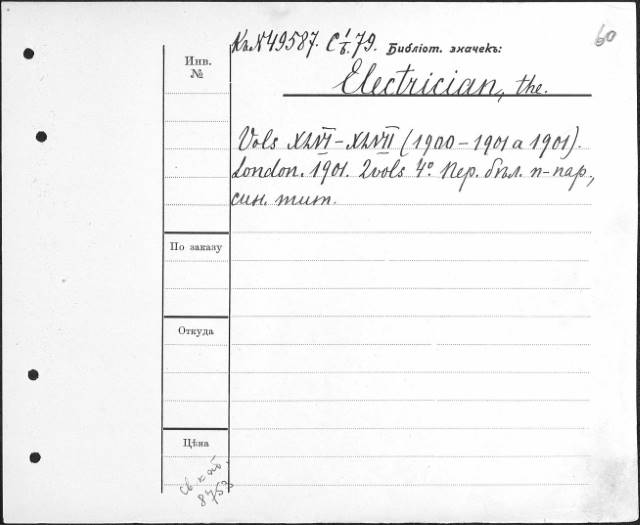 60
Къ № 49587. С 1/б. 79. Библіот. значекъ:
Инв.
№
Electrician, the.
Vols XLVI-XLVII (1900-1901 a 1901).
London. 1901. 2 vols 4° Пер. бѣл. п-пар.,
син. тит.
По заказу
Откуда
Цѣна
св. каб.
8753